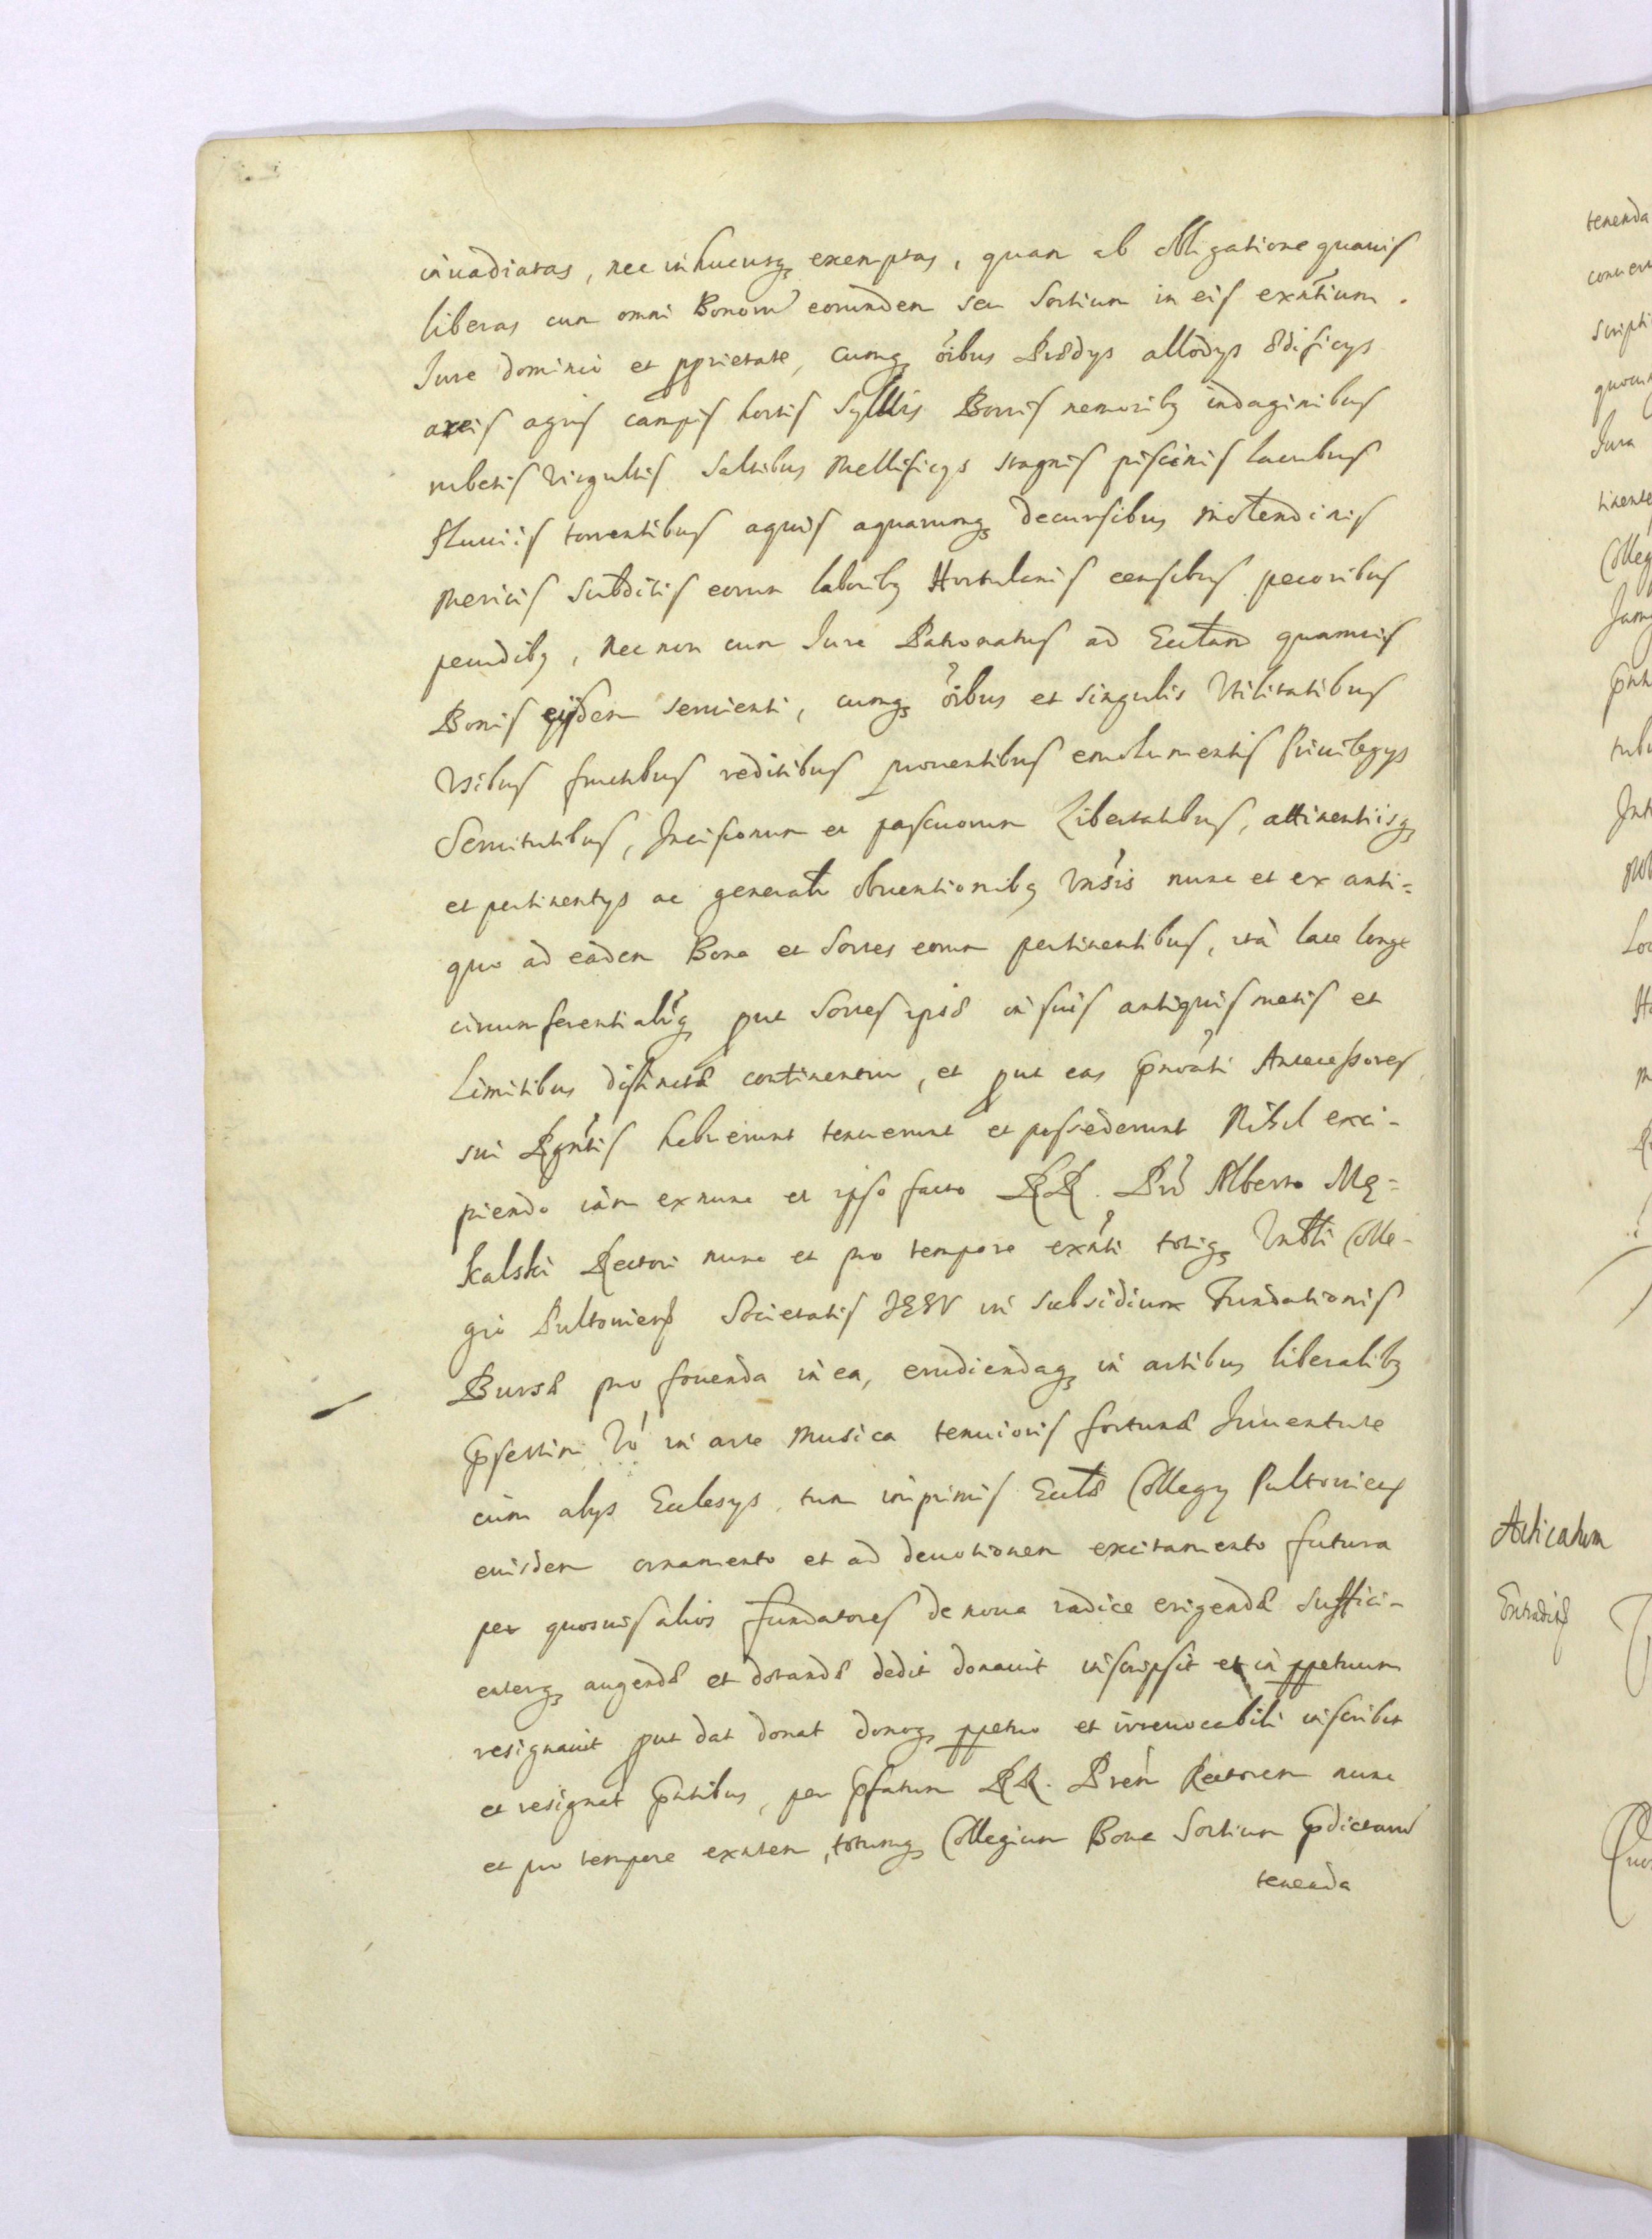 inuadiatas, nec inhucusq exemptas, quam ab obligatione quauis
liberas cum omni Bonorũ eorumdem seu Sortium in eis exñtium.
Jure dominii et pprietate, cumq õibus Prædys allodys ædificys
areis agris campis hortis Syluis Borris nemoribq indaginibus
rubetis Virgultis Saltibus Mellificys stagnis piscinis lacubus
fluuiis torrentibus aquis aquarumq decursibus Molendinis
Mericis Subditis eorum laboribq Hortulanis censibus pecoribus
pecudibq, nec non cum Jure Patronatus ad Ecclam quamuis
Bonis eysdem seruienti, cumq õibus et singulis Vtilitatibus
Vsibus fructibus reditibus prouentibus emolumentis Priuilegys
Seruitutibus, Incisionum et pascuorum Libertatibus, attinentiisq
et pertinentys ac generalr obuentionibq VnSis nunc et ex anti=
quo ad eadem Bona et Sortes eorum pertinentibus, ità late longe
circumferentialrq put Sortes ipsæ in suis antiquis metis et
Limitibus distinctæ continentur, et put eas pnoãti Antecessores
sui Rgñtis habuerunt tenuerunt et possederunt Nihil exci-
piendo iam exnunc et ipso facto RR. Pri Alberto Mę=
kalski Rectori nunc et pro tempore exñti totiq Vnctti Colle-
gio Pultouiens Societatis JESV in Subsidium Fundationis
Bursæ pro fouenda in ea, erudiendaq in artibus liberalibq
psertim Vo in arte Musica tenuioris fortunæ Juuentute
cum alys Ecclesys, tum inprimis Ecclæ Collegy Pultouien
euisdem ornamento et ad deuotionem excitamento futura
per quosuis alios fundatores de noua radice erigendæ suffici-
enterq augendæ et dotandæ dedit donauit inscripsit et in ppetuum
resignauit put dat donat donoq ppetuo et irreuocabili inscribit
et resignat pñtibus, per pfatum RR. Prem Rectorem nunc
et pro tempore exñtem, totumq Collegium Bona Sortium pdictarũ
tenenda
Articatum
Entradis